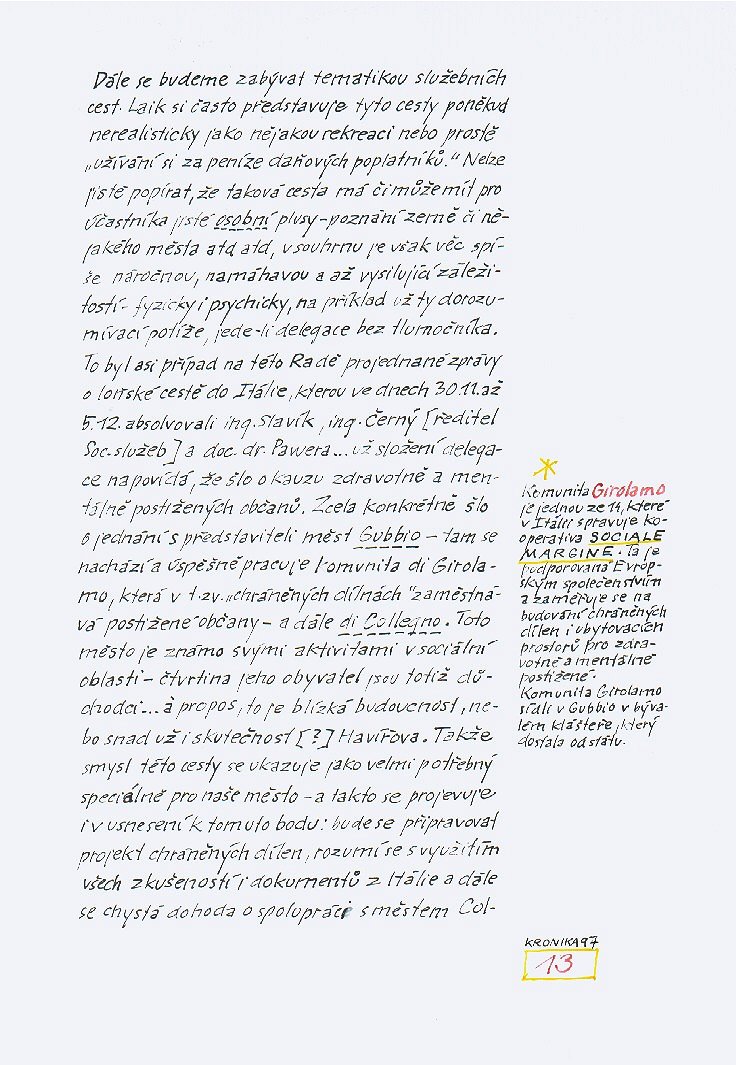 Dále se budeme zabývat tematikou služebních
cest. Laik si často představuje tyto cesty poněkud
nerealisticky jako nějakou rekreaci nebo prostě
„užívání si za peníze daňových poplatníků.“ Nelze
jistě popírat, že taková cesta má či může mít pro
účastníka jisté osobní plusy – poznání země či ně-
jakého města atd atd, v souhrnu je však věc spí-
še náročnou, namáhavou a až vysilující záleži-
tostí – fyzicky i psychicky, na příklad už ty dorozu-
mívací potíže, jede-li delegace bez tlumočníka.
To byl asi případ na této Radě projednané zprávy
o loňské cestě do Itálie, kterou ve dnech 30.11. až
5.12. absolvovali ing. Slavík, ing. Černý [ředitel
Soc. služeb] a doc. dr. Pawera... už složení delega-
ce napovídá, že šlo o kauzu zdravotně a men-
tálně postižených občanů. Zcela konkrétně šlo
o jednání s představiteli měst Gubbio – tam se
nachází a úspěšně pracuje komunita di Girola-
mo, která v t. zv. „chráněných dílnách“ zaměstná-
vá postižené občany – a dále di Collegno. Toto
město je známo svými aktivitami v sociální
oblasti – čtvrtina jeho obyvatel jsou totiž dů-
chodci... à propos, to je blízká budoucnost, ne-
bo snad už i skutečnost [?] Havířova. Takže
smysl této cesty se ukazuje jako velmi potřebný
speciálně pro naše město – a takto se projevuje
i v usnesení k tomuto bodu: bude se připravovat
projekt chráněných dílen, rozumí se s využitím
všech zkušeností i dokumentů z Itálie a dále
se chystá dohoda o spolupráci s městem Col-
Komunita Girolamo
je jednou ze 14, které
v Itálii spravuje ko-
operativa SOCIALE
MARGINE. Ta je
podporována Evrop-
ským společenstvím
a zaměřuje se na
budování chráněných
dílen i ubytovacích
prostorů pro zdra-
votně a mentálně
postižené.
Komunita Girolamo
sídlí v Gubbio v býva-
lém klášteře, který
dostala od státu.
KRONIKA 97
13